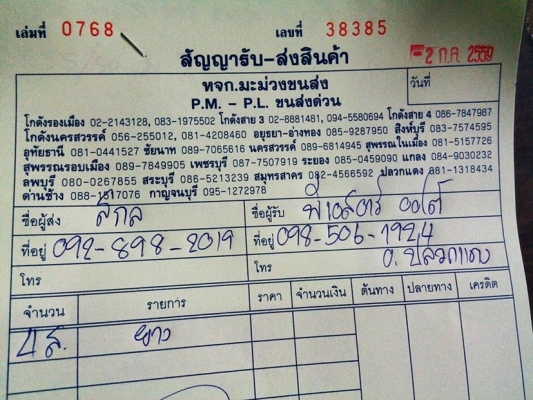 เล่มที่ 0768 เลขที่ 38385
สัญญารับ-ส่งสินค้า
-2 ก.ค. 2559
ทจก.มะม่วงขนส่ง
วันที่
P.M. - P.L. ขนส่งด่วน
โกดังรองเมือง 02-2143128, 083-1975502 โกดังสาย 3 02-8881481, 094-5580694 โกดังสาย 4 086-7847987
โกดังนครสวรรค์ 056-255012, 081-4208460 อยุธยา-อ่างทอง 085-9287950 สิงห์บุรี 083-7574595
อุทัยธานี 081-0441527 ชัยนาท 089-7065616 นครสวรรค์ 089-6814945 สุพรรณในเมือง 081-5157726
สุพรรณรอบเมือง 089-7849905 เพชรบุรี 087-7507919 ระยอง 085-0459090 แกลง 084-9030232
ลพบุรี 080-0267855 สระบุรี 086-5213239 สมุทรสาคร 082-4566592 ปลวกแดง 081-1318434
ด่านช้าง 088-1517076 กาญจนบุรี 095-1272978
ชื่อผู้ส่ง สกล ชื่อผู้รับ พีเอสตาร์ ออโต้
ที่อยู่ 092-898-2019 ที่อยู่ 098-506-1924
โทร โทร อ.ปลวกแดง
จำนวน รายการ ราคา จำนวนเงิน ต้นทาง ปลายทาง เครดิต
4 ส. ยาง